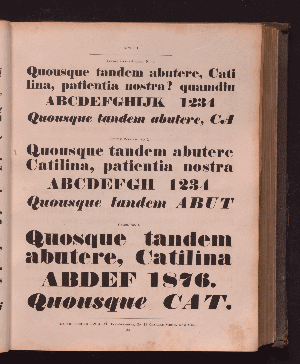 Quousque tandem abutere, Cati
lina, patientia nostra? quamdiu
ABCDEFGHIJK 1234
Quousque tandem abutere, CA
Quousque tandem abutere
Catilina, patientia nostra
ABCDEFGH 1234
Quousque tandem ABUT
Quosque tandem
abutere, Catilina
ABDEF 1876.
Quousque CAT.